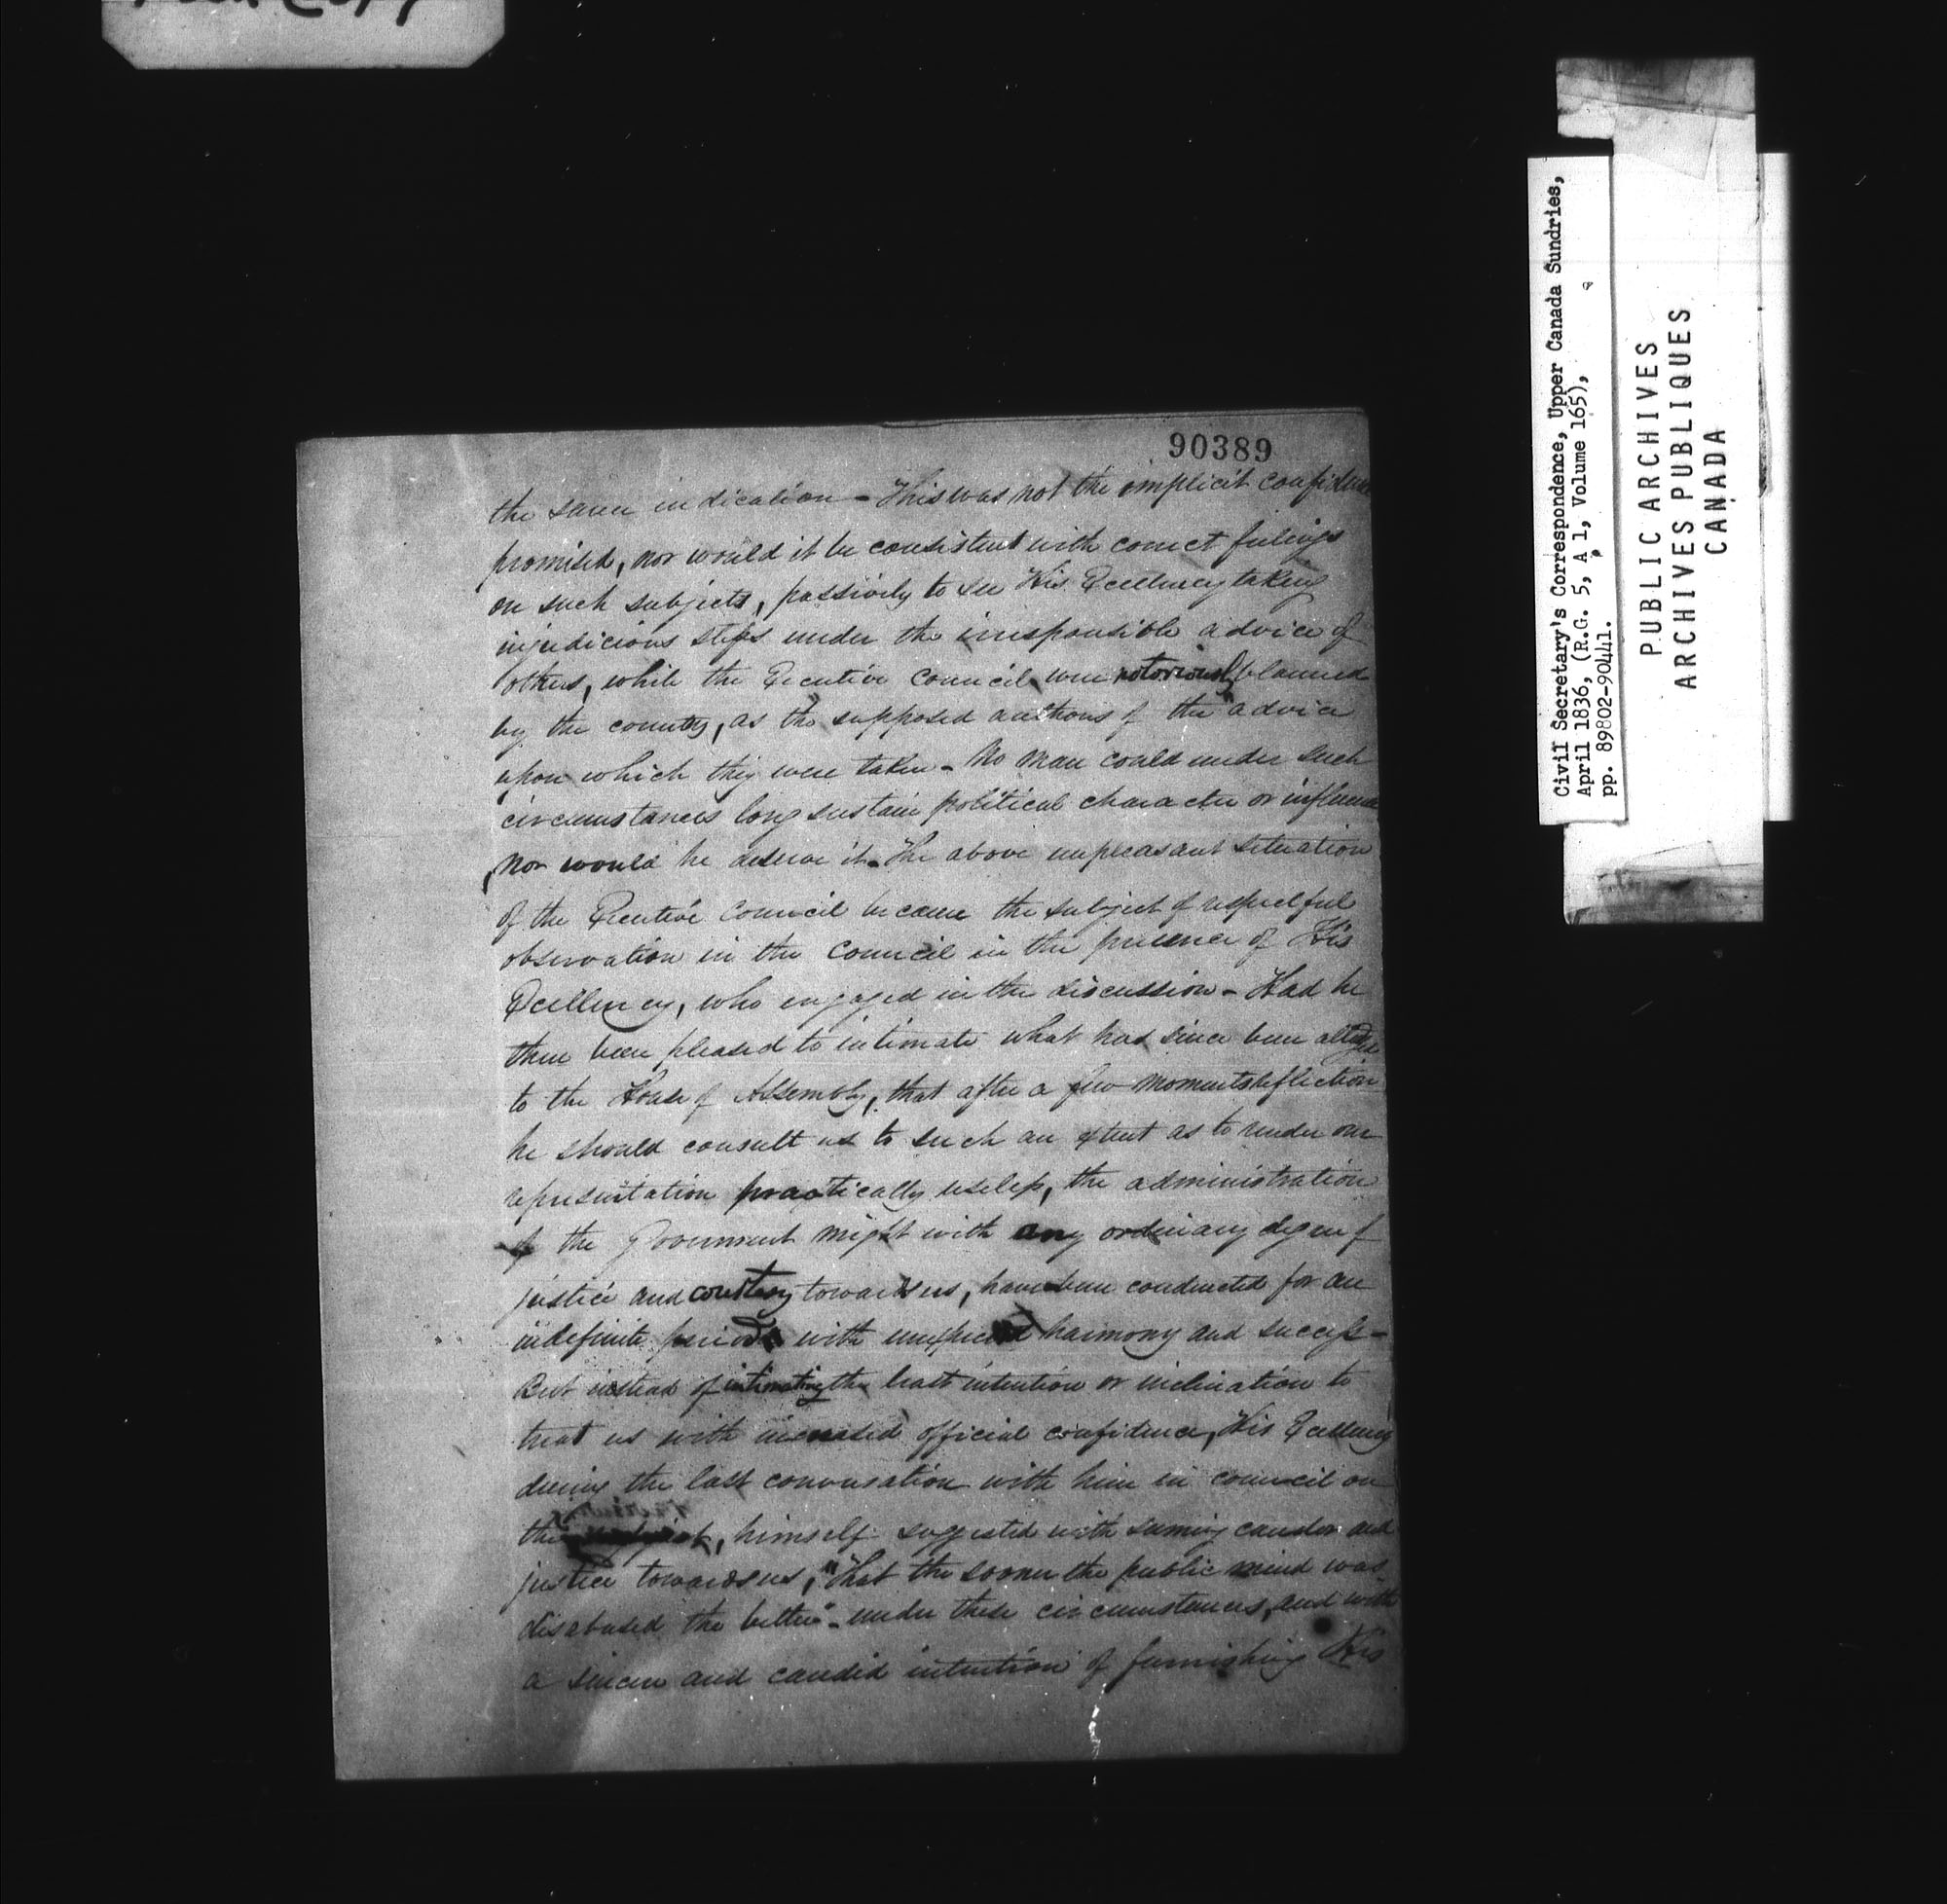 90389
the same indication - This was not the implicit confidence
promised, nor would it be consistent with correct feelings
on such subjects, passively to see His Excellency taking
injudicious steps under the irresponsible advice of
others, while the Executive Council were notoriously blamed
by the country, as the supposed authors of the advice
upon which they were taken - No man could under such
circumstances long sustain political character or influence
nor would he deserve it - The above unpleasant situation
of the Executive Council became the subject of respectful
observation in the Council in the presence of His
Excellency, who engaged in the discussion - Had he
then been pleased to intimate what has since been alledged
to the House of Assembly, that after a few moments reflection
he should consult us to such an extent as to render our
representation practically useless, the administration
of the Government might with any ordinary degree of
justice and courtesy towards us, have been conducted for an
indefinite period with unexpected harmony and success -
But instead of intimating the least intention or inclination to
treat us with increased official confidence, His Excellency
during the last conversation with him in council on
the, himself suggested with seeming candor and
justice towards us, "that the sooner the public mind was
disabused the better" - under these circumstances, and with
a sincere and candid intention of furnishing His
Civil Secretary's Correspondence, Upper Canada Sundries,
April 1836, (R.G. 5, A 1, Volume 165),
pp. 89802-90441.
PUBLIC ARCHIVES
ARCHIVES PUBLIQUES
CANADA